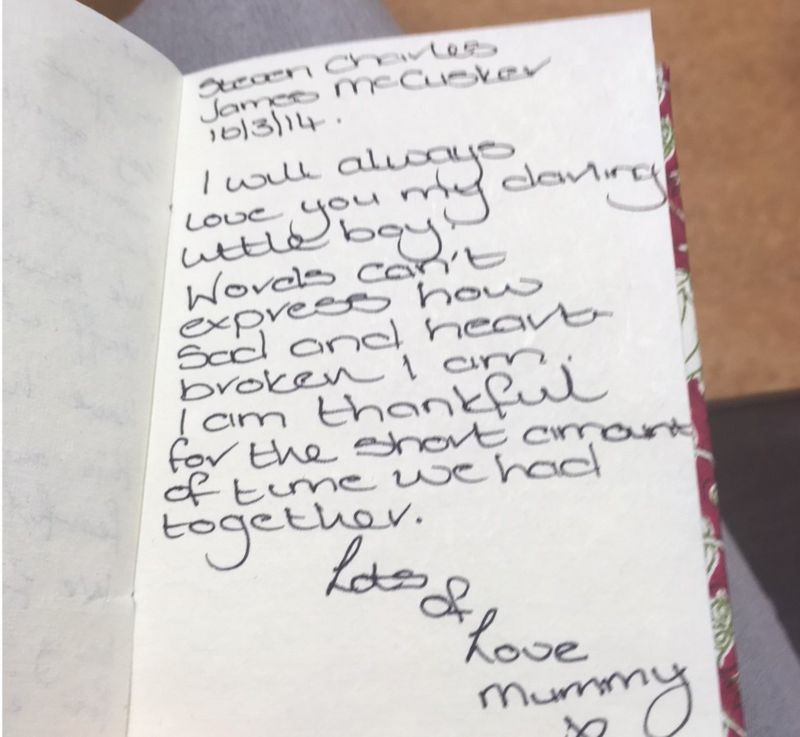 Steven Charles
James McCusker
16/3/14.
I will always
love you my darling
little boy.
Words can't
express how
sad and heart
broken I am.
I am thankful
for the short amount
of time we had
together.
Lots
of
Love
Mummy
x